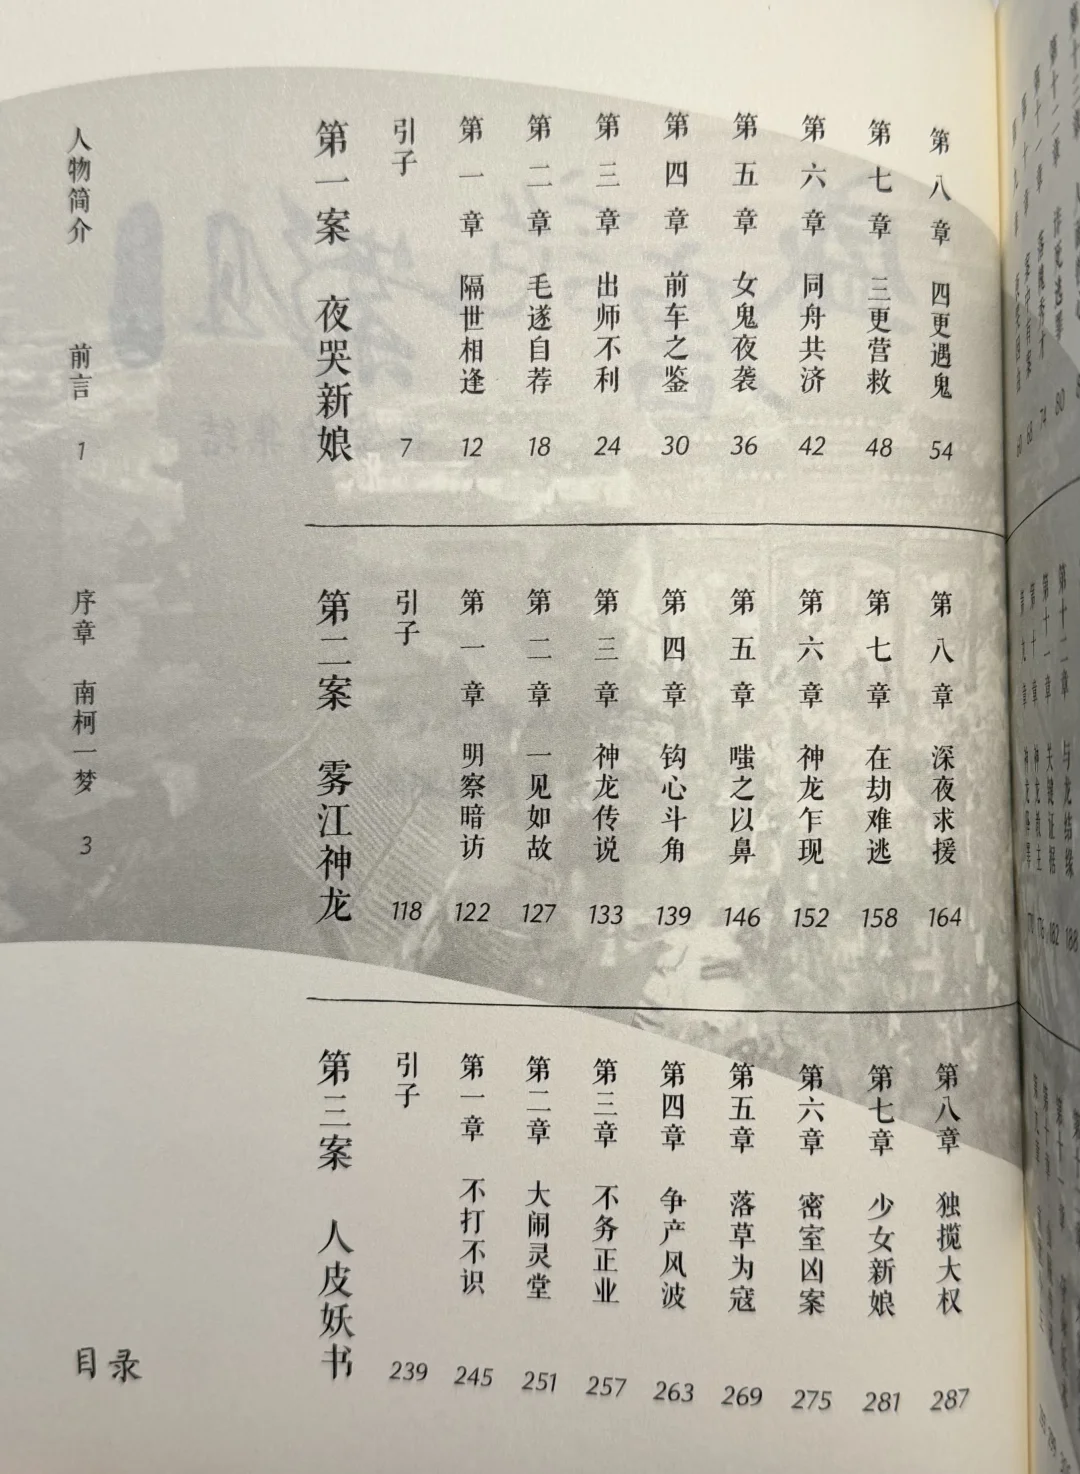 目录
人物简介
前言 1
序章 南柯一梦 3
第一案 夜哭新娘
引子 7
第一章 隔世相逢 12
第二章 毛遂自荐 18
第三章 出师不利 24
第四章 前车之鉴 30
第五章 女鬼夜袭 36
第六章 同舟共济 42
第七章 三更营救 48
第八章 四更遇鬼 54
第二案 雾江神龙
引子 118
第一章 明察暗访 122
第二章 一见如故 127
第三章 神龙传说 133
第四章 钩心斗角 139
第五章 嗤之以鼻 146
第六章 神龙乍现 152
第七章 在劫难逃 158
第八章 深夜求援 164
第三案 人皮妖书
引子 239
第一章 不打不识 245
第二章 大闹灵堂 251
第三章 不务正业 257
第四章 争产风波 263
第五章 落草为寇 269
第六章 密室凶案 275
第七章 少女新娘 281
第八章 独揽大权 287
第十一章 关键证据 182
第十二章 与龙结缘 188